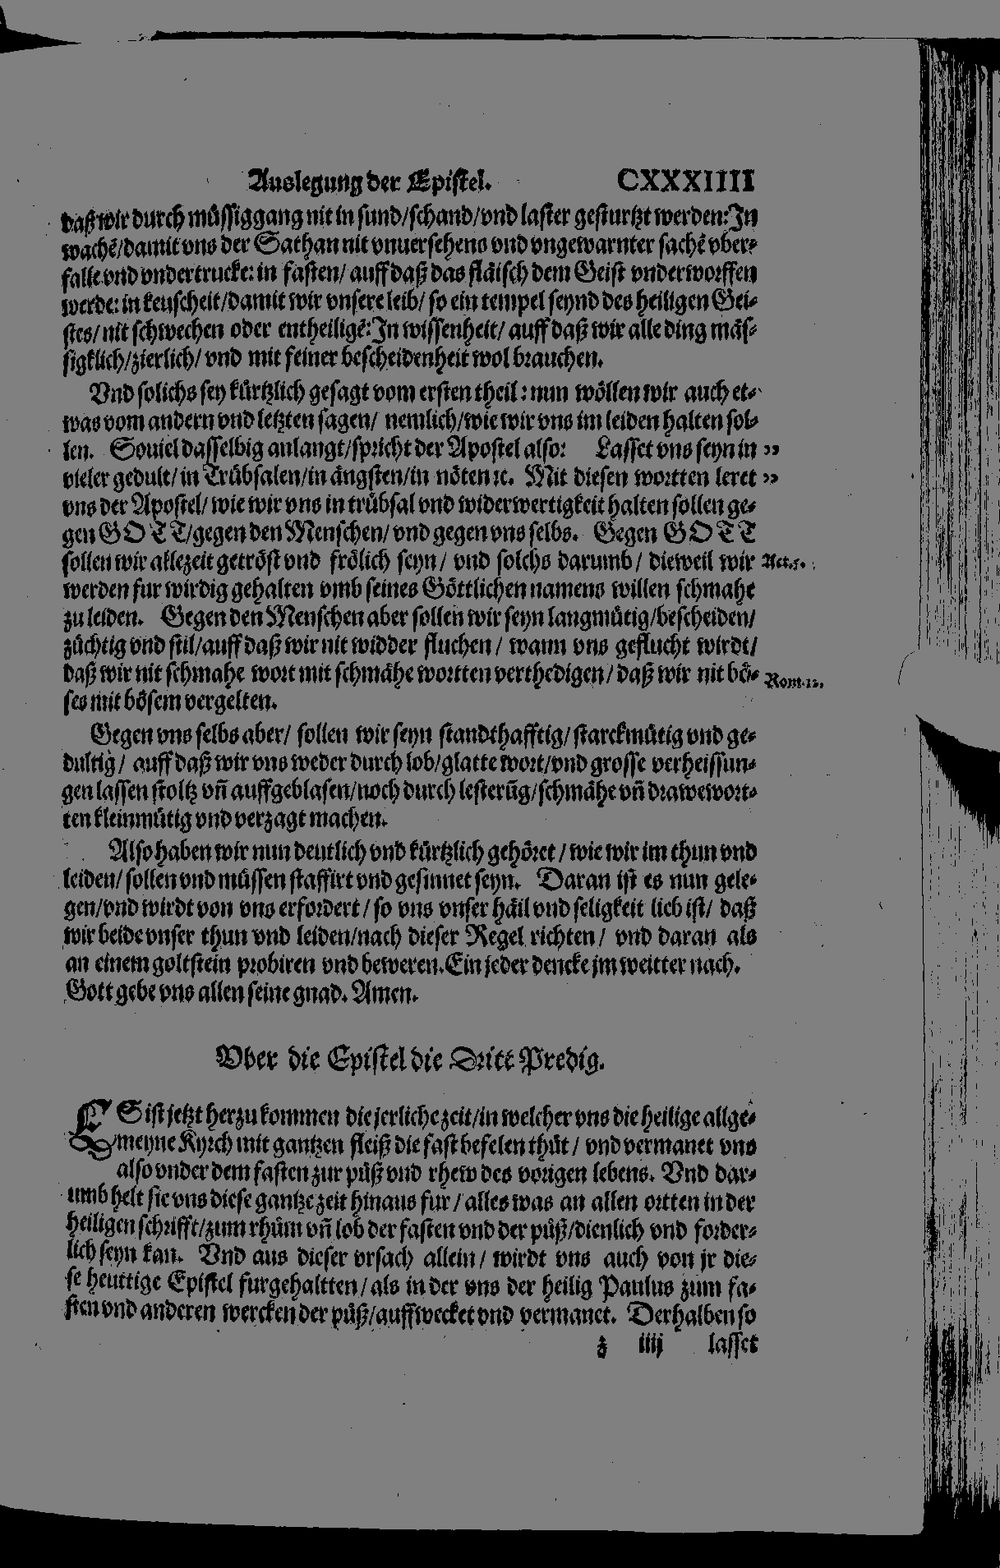 Auslegung der Epistel. CXXXIIII
daß wir durch müssiggang nit in sund/schand/vnd laster gesturtzt werden: In
wachē/damit vns der Sathan nit vnuersehens vnd vngewarnter sachē vber-
falle vnd vndertrucke: in fasten/ auff daß das fläisch dem Geist vnderworffen
werde: in keuscheit/damit wir vnsere leib/ so ein tempel seynd des heiligen Gei-
stes/ nit schwechen oder entheiligē: In wissenheit/ auff daß wir alle ding mäs-
sigklich/zierlich/ vnd mit feiner bescheidenheit wol brauchen.
Vnd solichs sey kürtzlich gesagt vom ersten theil: nun wöllen wir auch et-
was vom andern vnd letzten sagen/ nemlich/wie wir vns im leiden halten sol-
len. Souiel dasselbig anlangt/spricht der Apostel also: Lasset vns seyn in „
vieler gedult/ in Trübsalen/in ängsten/in nöten ꝛc. Mit diesen wortten leret „
vns der Apostel/ wie wir vns in trübsal vnd widerwertigkeit halten sollen ge-
gen GOTT/gegen den Menschen/ vnd gegen vns selbs. Gegen GOTT
sollen wir allezeit getröst vnd frölich seyn/ vnd solchs darumb/ dieweil wir Act.5.
werden fur wirdig gehalten vmb seines Göttlichen namens willen schmahe
zu leiden. Gegen den Menschen aber sollen wir seyn langmütig/bescheiden/
züchtig vnd stil/auff daß wir nit widder fluchen/ wann vns geflucht wirdt/
daß wir nit schmahe wort mit schmähe wortten verthedigen/ daß wir nit bö- Rom.12.
ses mit bösem vergelten.
Gegen vns selbs aber/ sollen wir seyn standthafftig/starckmütig vnd ge-
dultig/ auff daß wir vns weder durch lob/glatte wort/vnd grosse verheissun-
gen lassen stoltz vñ auffgeblasen/noch durch lesterūg/schmähe vñ drawewort-
ten kleinmütig vnd verzagt machen.
Also haben wir nun deutlich vnd kürtzlich gehöret/ wie wir im thun vnd
leiden/ sollen vnd müssen staffirt vnd gesinnet seyn. Daran ist es nun gele-
gen/vnd wirdt von vns erfordert/ so vns vnser häil vnd seligkeit lieb ist/ daß
wir beide vnser thun vnd leiden/nach dieser Regel richten/ vnd daran als
an einem goltstein probiren vnd beweren. Ein jeder dencke jm weitter nach.
Gott gebe vns allen seine gnad. Amen.
Vber die Epistel die Dritt Predig.
ES ist jetzt herzu kommen die jerliche zeit/in welcher vns die heilige allge-
meyne Kyrch mit gantzen fleiß die fast befelen thůt/ vnd vermanet vns
also vnder dem fasten zur půß vnd rhew des vorigen lebens. Vnd dar-
umb helt sie vns diese gantze zeit hinaus fur/ alles was an allen ortten in der
heiligen schrifft/zum rhům vñ lob der fasten vnd der půß/dienlich vnd forder-
lich seyn kan. Vnd aus dieser vrsach allein/ wirdt vns auch von jr die-
se heuttige Epistel furgehaltten/ als in der vns der heilig Paulus zum fa-
sten vnd anderen wercken der půß/auffwecket vnd vermanet. Derhalben so
z iiij lasset